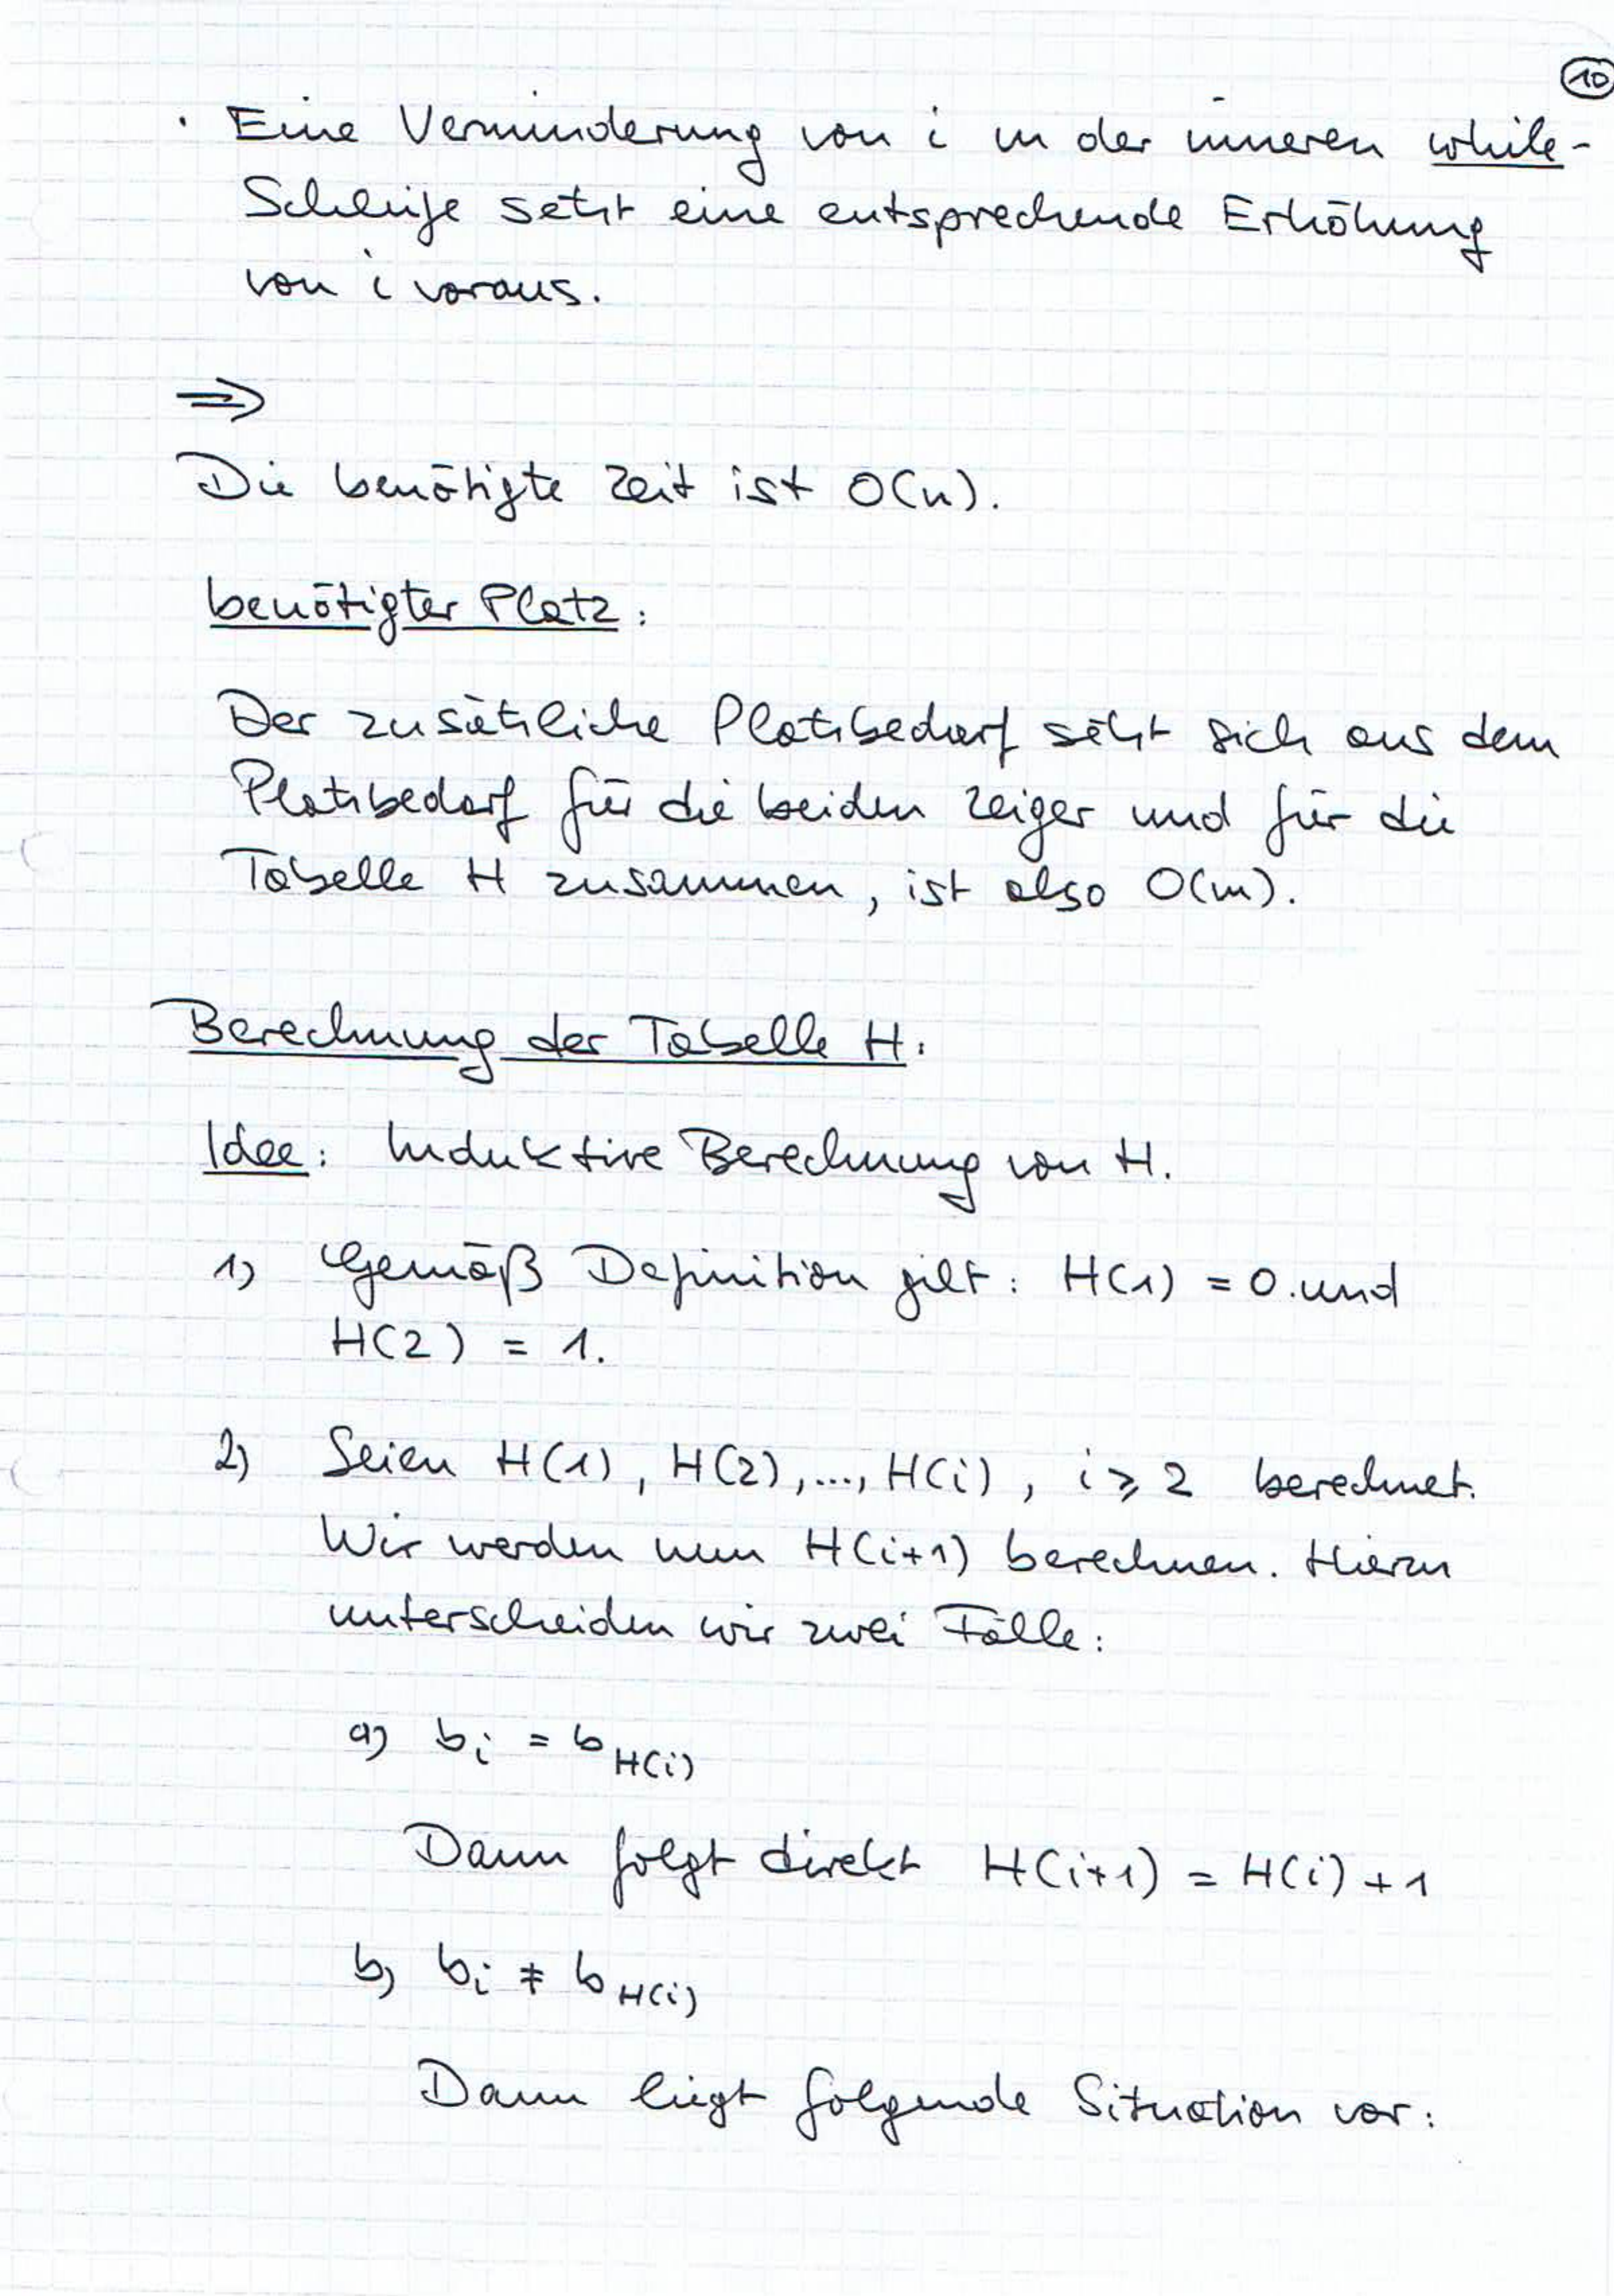 10
· Eine Verminderung von i in der inneren while-
Schleife setzt eine entsprechende Erhöhung
von i voraus.
⇒
Die benötigte Zeit ist O(n).
benötigter Platz:
Der zusätzliche Platzbedarf setzt sich aus dem
Platzbedarf für die beiden Zeiger und für die
Tabelle H zusammen, ist also O(m).
Berechnung der Tabelle H:
Idee: Induktive Berechnung von H.
1) Gemäß Definition gilt: H(1) = 0 und
H(2) = 1.
2) Seien H(1), H(2), ..., H(i), i ≥ 2 berechnet.
Wir werden nun H(i+1) berechnen. Hierzu
unterscheiden wir zwei Fälle:
a) b_i = b_H(i)
Dann folgt direkt H(i+1) = H(i) + 1
b) b_i ≠ b_H(i)
Dann liegt folgende Situation vor: